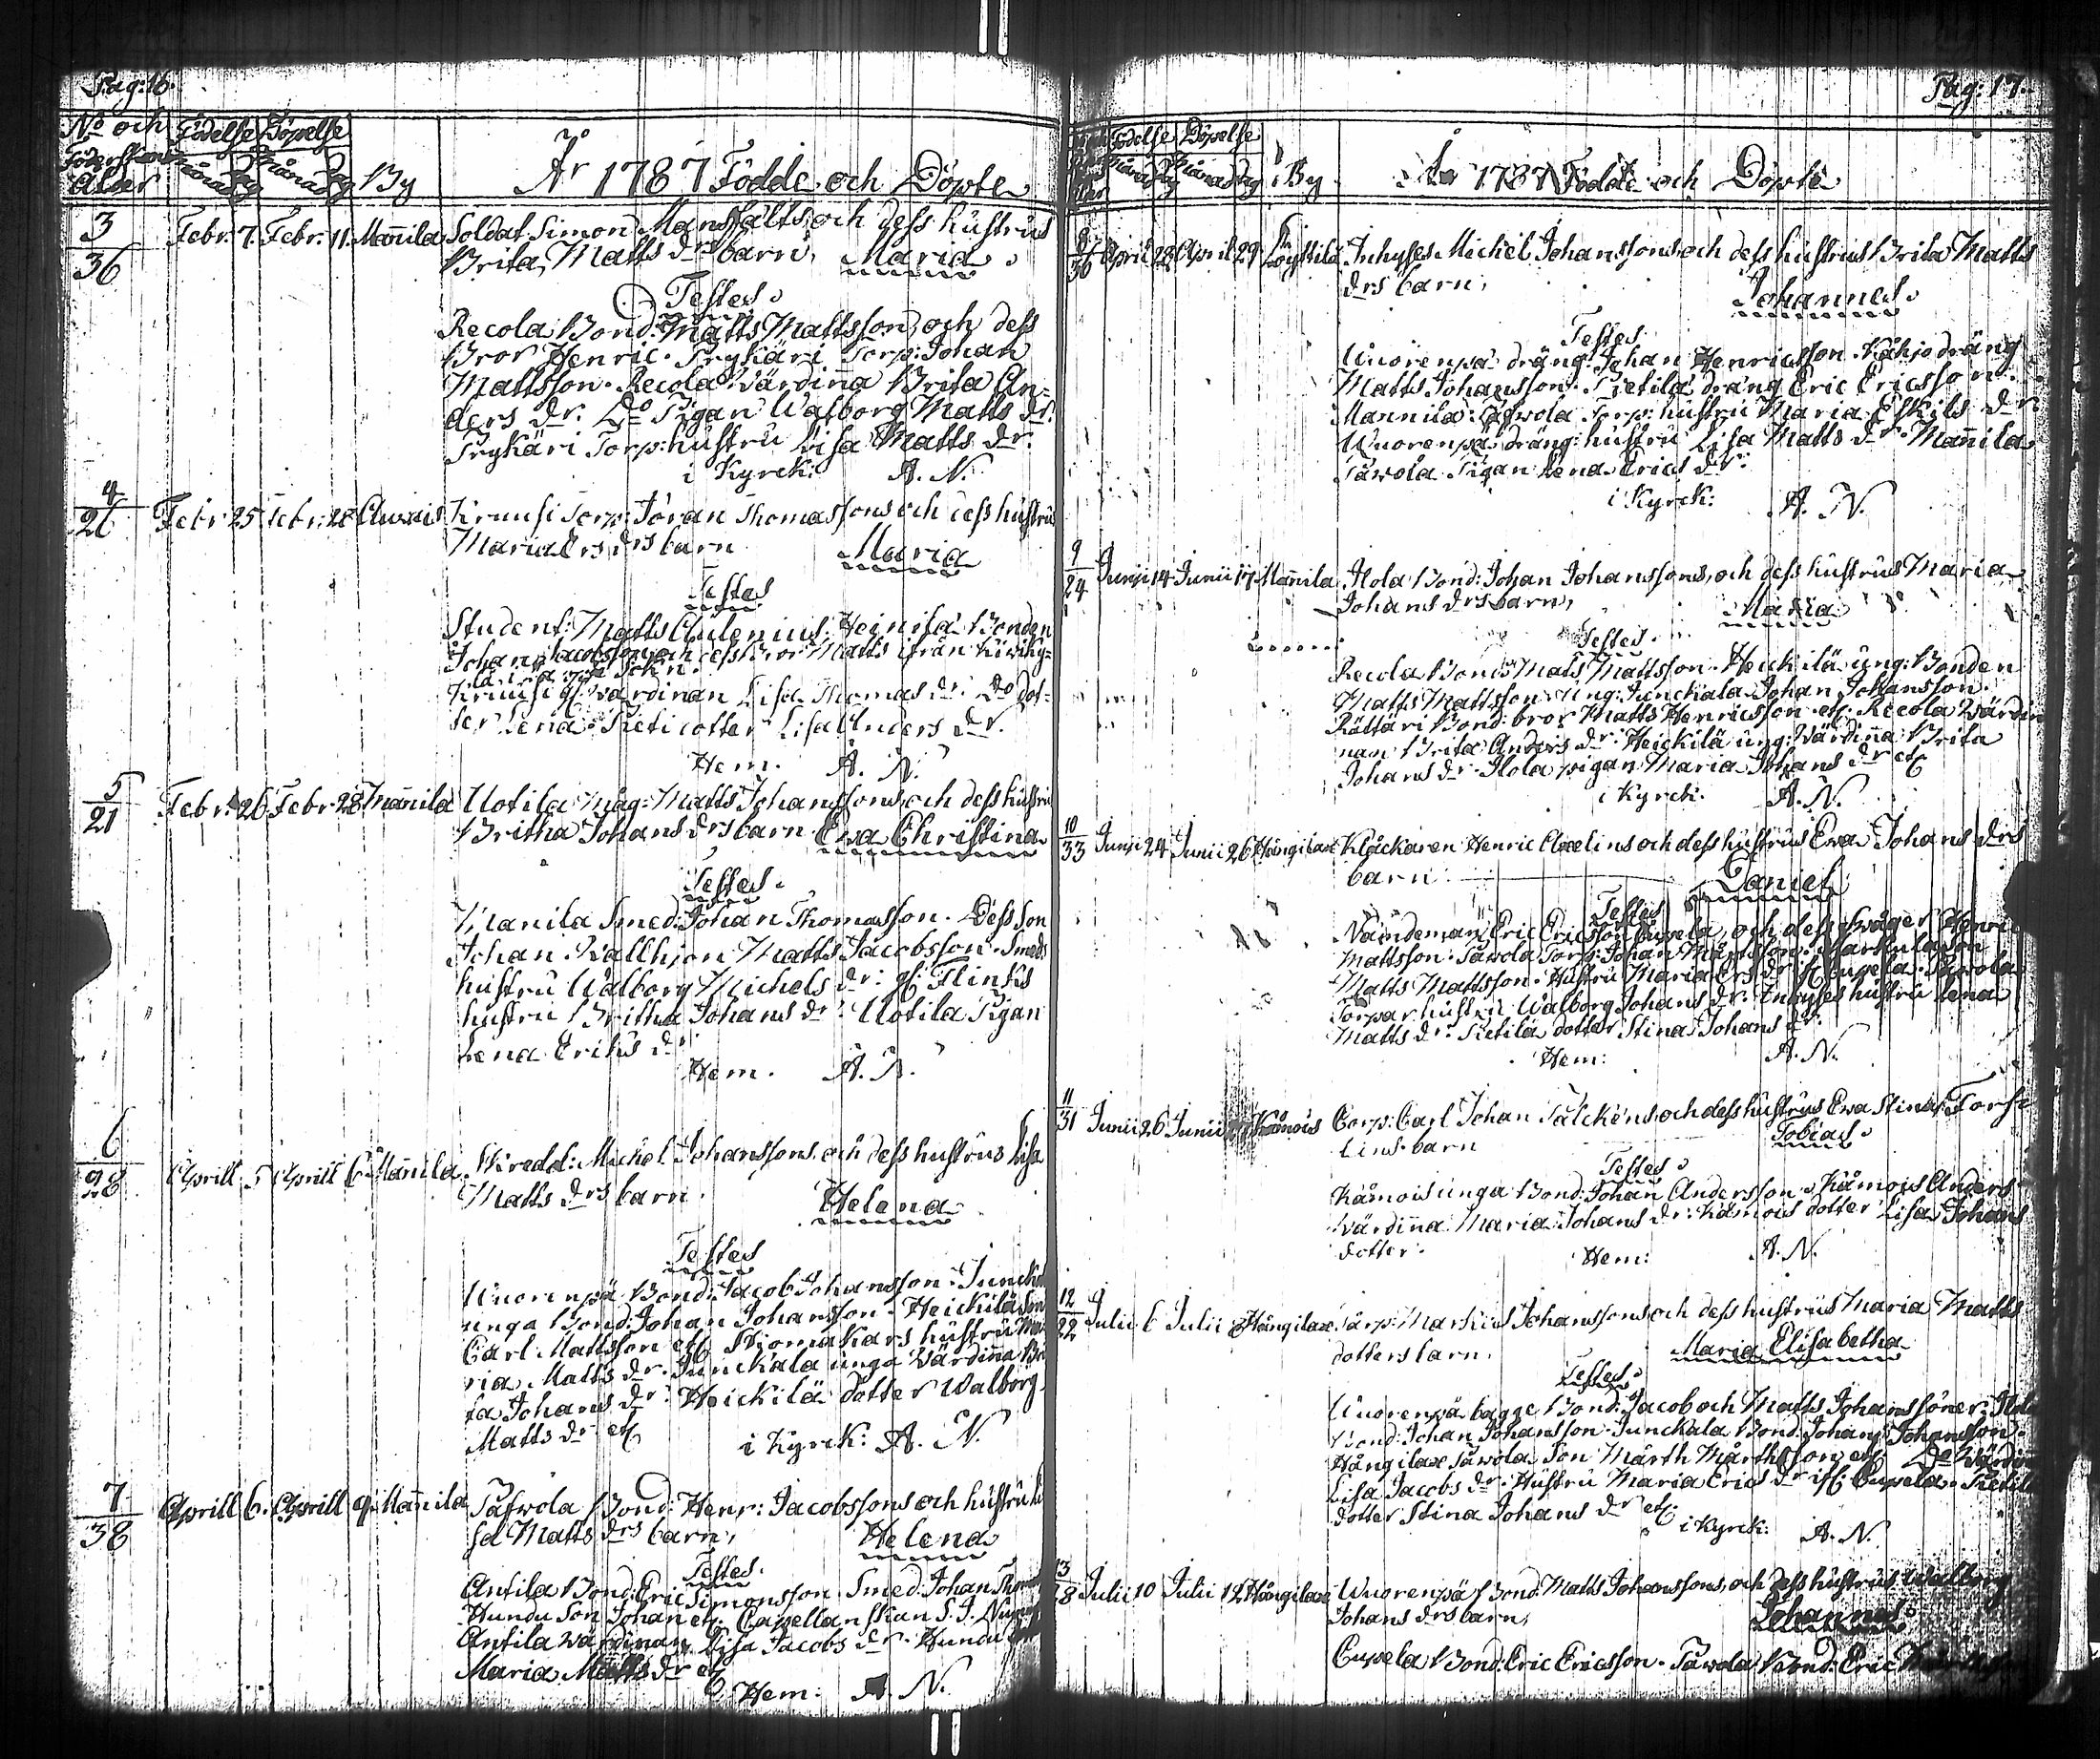 Pag: 16.
No och Föderskans Ålder
Födelse Månad Dag
Döpelse Månad Dag
By
År 1787 Födde och Döpte
3/36 Febr. 7. Febr. 11. Mannila Soldat Simon Mansfälts och dess hustrus
Brita Matts drs barn, Maria
Testes.
Recola Bond: Matts Mattsson, och dess
Bror Henric. Prykäri Torp: Johan
Mattsson. Recola Värdinna Brita An=
ders dr. Do Pigan Walborg Matts dr.
Prykäri Torp: hustru Lisa Matts dr.
i Kyrck: A. N.
4/26 Febr. 25 Febr. 28 Auvais Kruusi Torp: Jöran Thomassons och dess hustrus
Maria Ers drs barn Maria
Testes
Student: Matts Aulenius. Heinisa Bonden
Johan Jacobsson och dess Bror Matts ifrån
Kruusi gl. värdinan Lisa Thomas dr. Do dot=
ter Lena. Pieti dotter Lisa Anders dr.
Hem. A. N.
5/21 Febr. 26 Febr. 28 Mannila Uotila Måg: Matts Johanssons och dess hustru
Britha Johans drs barn Ewa Christina
Testes.
Manila Smed: Johan Thomasson. Dess son
Johan. Matts Jacobsson. Smeds
hustru Walborg Michels dr: gl. Flinks
hustru Britha Johans dr. Uotila Pigan
Lena Eriks dr
Hem. A. N.
6/28 Aprill 5 Aprill 6 Mannila Michel Johanssons och dess hustrus Lisa
Matts drs barn. Helena
Testes
Wuorenpä Bond: Jacob Johansson. Junck
unga Bond: Johan Johansson. Heickilä Son
Carl Mattsson etc hustru
ria Matts dr. Junckala unga Värdinna Bri
ta Johans dr. Heickilä dotter Walborg
Matts dr etc
i Kyrck: A. N.
7/38 Aprill 6. Aprill 9. Mannila Päfwola Bond: Henr: Jacobssons och hustru Li
sa Matts drs barn, Helena
Testes.
Antila Bond: Eric Simonsson. Smed: Johan
Hundu Son Johan etc. Capellanskan S. J.
Antila Värdinan Lisa Jacobs dr. Hundu
Maria Matts dr etc
Hem: A. N.
Pag: 17.
Födelse Månad Dag
Döpelse Månad Dag
By
År 1787 Födde och Döpte
8/36 April 28 April 29 Inhyses Michel Johanssons och dess hustrus Brita Matts
drs barn, Johannes.
Testes
Wuorenpä dräng: Johan Henricsson. dräng
Matts Johansson. Pietilä dräng Eric Ericsson.
Mannila Päfwola Torp: hustru Maria Eskils dr.
Wuorenpä dräng: hustru Lisa Matts dr. Mannila
Päwola Pigan Lena Erics dr:
i Kyrck: A. N.
9/24 Junii 14 Junii 17 Mannila Ilola Bond: Johan Johanssons, och dess hustrus Maria
Johans drs barn, Maria
Testes.
Recola Bond: Matts Mattsson. Heickilä ung: Bonden
Matts Mattsson. Ung: Junckala Johan Johansson.
Rättäri Bond: bror Matts Henricsson etc. Recola Värdin
nan Brita Anders dr. Heickilä ung: Värdinna Brita
Johans dr. Ilola pigan Maria Johans dr etc
i Kyrck. A. N.
10/33 Junii 24 Junii 26 Hångilax Klåckaren Henric och dess hustrus Ewa Johans drs
barn Daniel
Testes
Nämdeman Eric Ericsson Cupela, och dess swåger Henric
Mattsson. Päwola Torp: Johan Mårtsson.
Matts Mattsson. Hustru Maria Ers dr Cupela. Päwola
Torpar hustru Walborg Johans dr. Inhyses hustru Lena
Matts dr. Pietilä dotter Stina Johans dr.
Hem: A. N.
11/31 Junii 26 Junii Kåmois Corp: Carl Johan Fälckens och dess hustrus Ewa Stina Forse
lins barn Tobias.
Testes.
Kåmois unga Bond: Johan Andersson. Kåmois Anders
Värdinna Maria Johans dr. Kåmois dotter Lisa Johans
dotter. Hem: A. N.
12/22 Julii 6 Julii 8 Hångilax Torp: Marcus Johanssons och dess hustrus Maria Matts
dotters barn. Maria Elisabetha
Testes.
Wuorenpä bägge Bond: Jacob och Matts Johanssöner. Ilola
Bond: Johan Johansson. Junckala Bond: Johans Johansson.
Hångilax Päwola Son Mårth Mårthsson etc. Do Värdin
Lisa Jacobs dr. Hustru Maria Erics dr Cupela. Pietilä
dotter Stina Johans dr etc.
i Kyrck: A. N.
13/ Julii 10 Julii 12 Hångilax Wuorenpä Bond: Matts Johanssons, och dess hustrus Walborg
Johans drs barn, Johannes.
Cupela Bond: Eric Ericsson. Päwola Bond: Eric